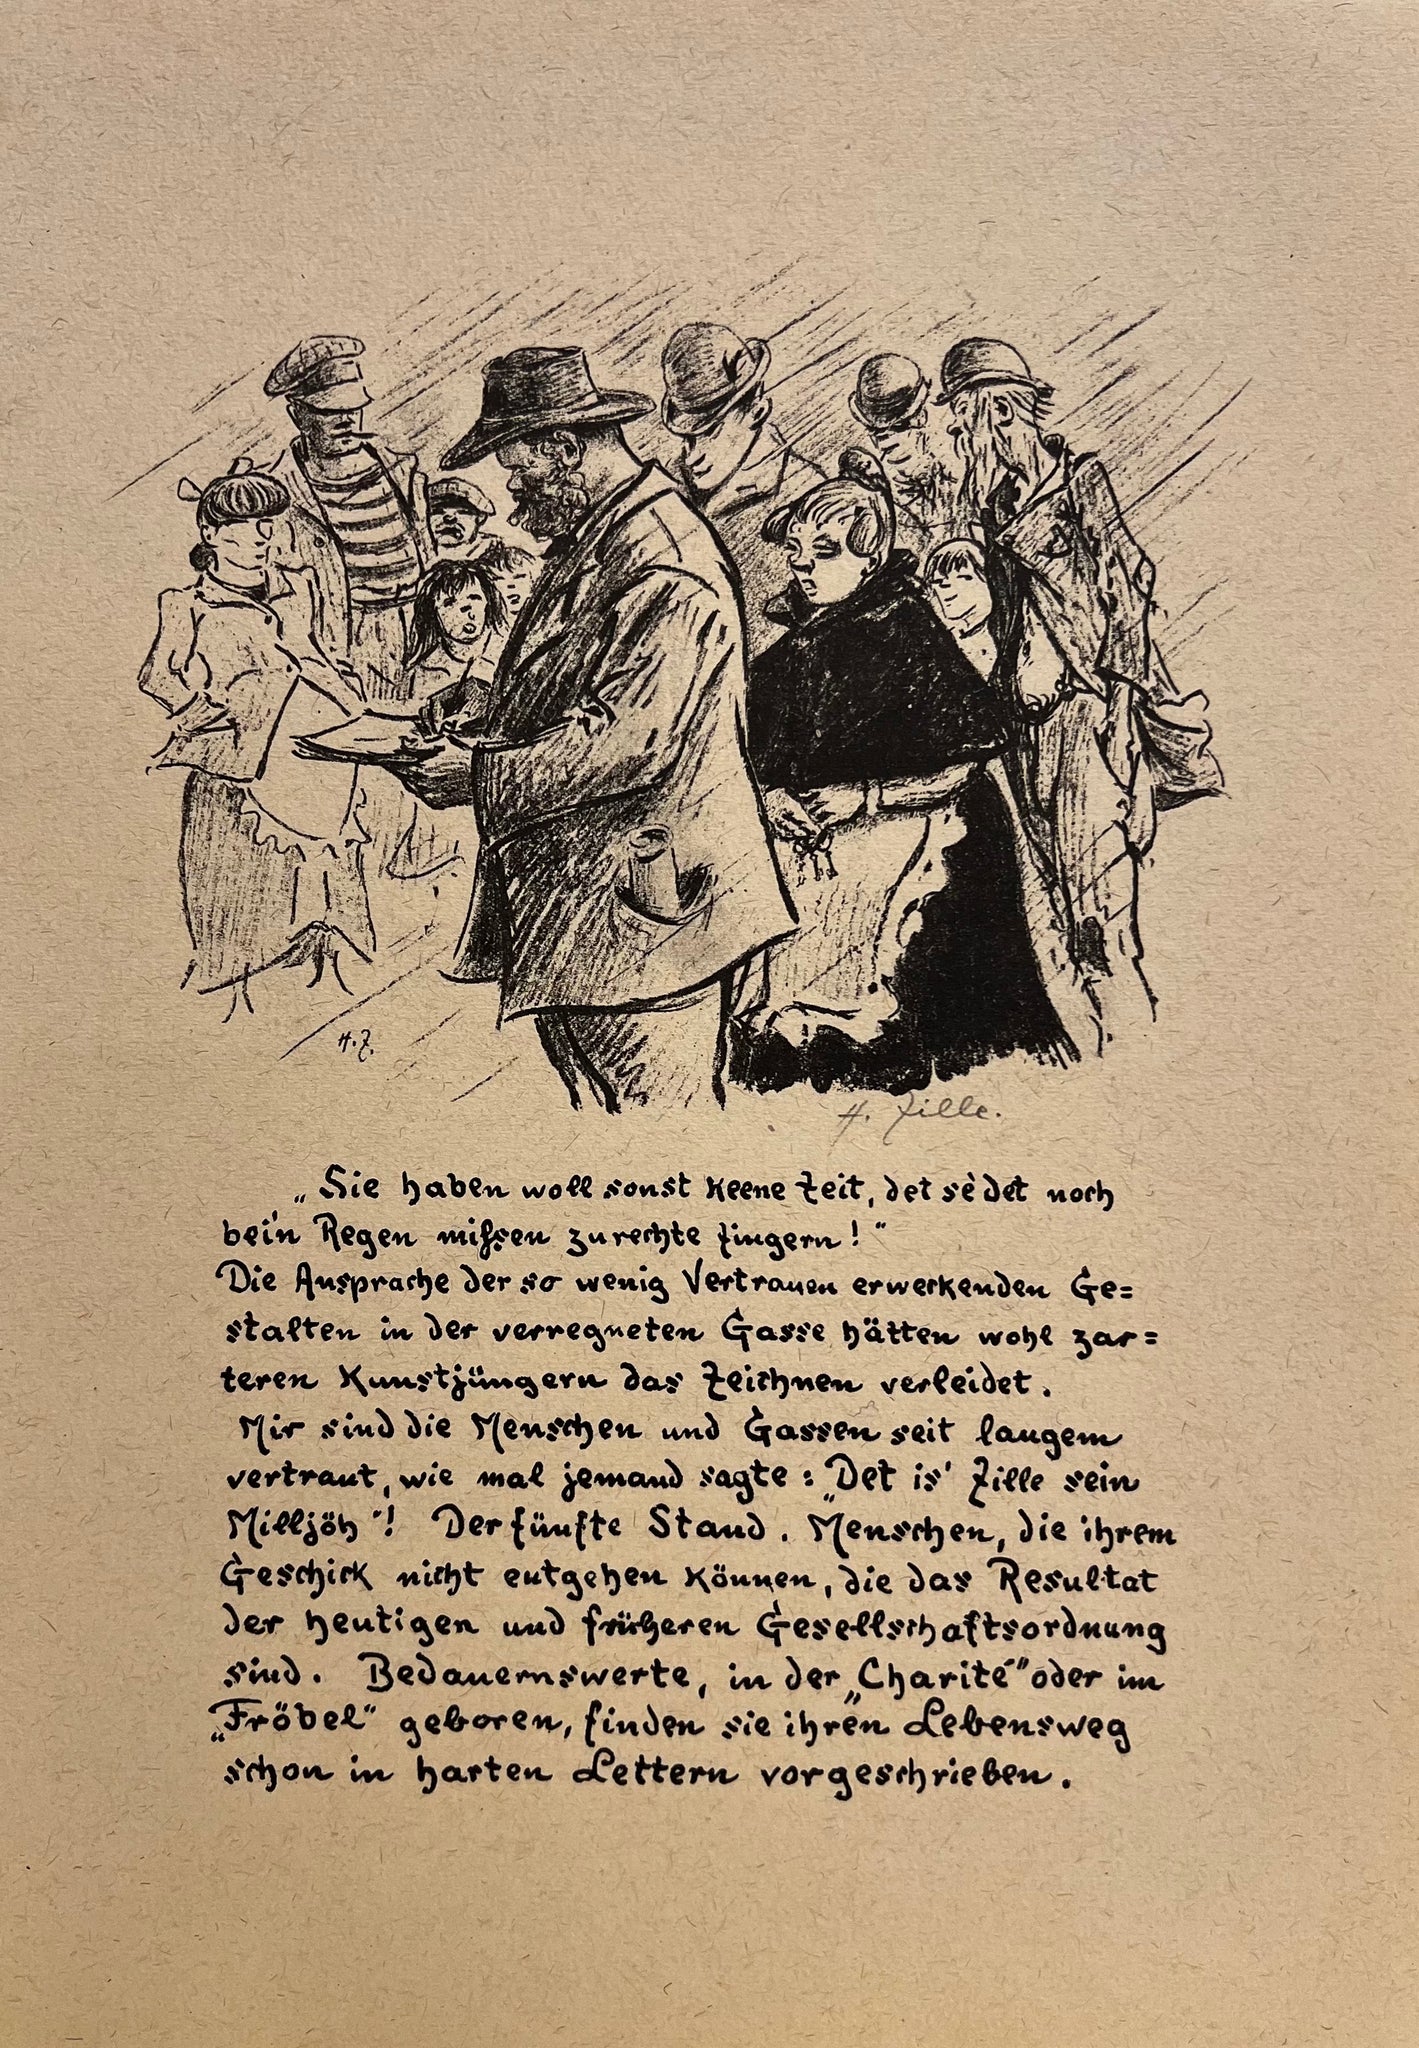 H. Z.
H. Zille.
„Sie haben woll sonst keene Zeit, det se det noch
bei'n Regen missen zurechte fingern!"
Die Ansprache der so wenig Vertrauen erweckenden Ge=
stalten in der verregneten Gasse hätten wohl zar=
teren Kunstjüngern das Zeichnen verleidet.
Mir sind die Menschen und Gassen seit langem
vertraut, wie mal jemand sagte: „Det is' Zille sein
Milljöh"! Der fünfte Stand. Menschen, die ihrem
Geschick nicht entgehen können, die das Resultat
der heutigen und früheren Gesellschaftsordnung
sind. Bedauernswerte, in der „Charité" oder im
„Fröbel" geboren, finden sie ihren Lebensweg
schon in harten Lettern vorgeschrieben.